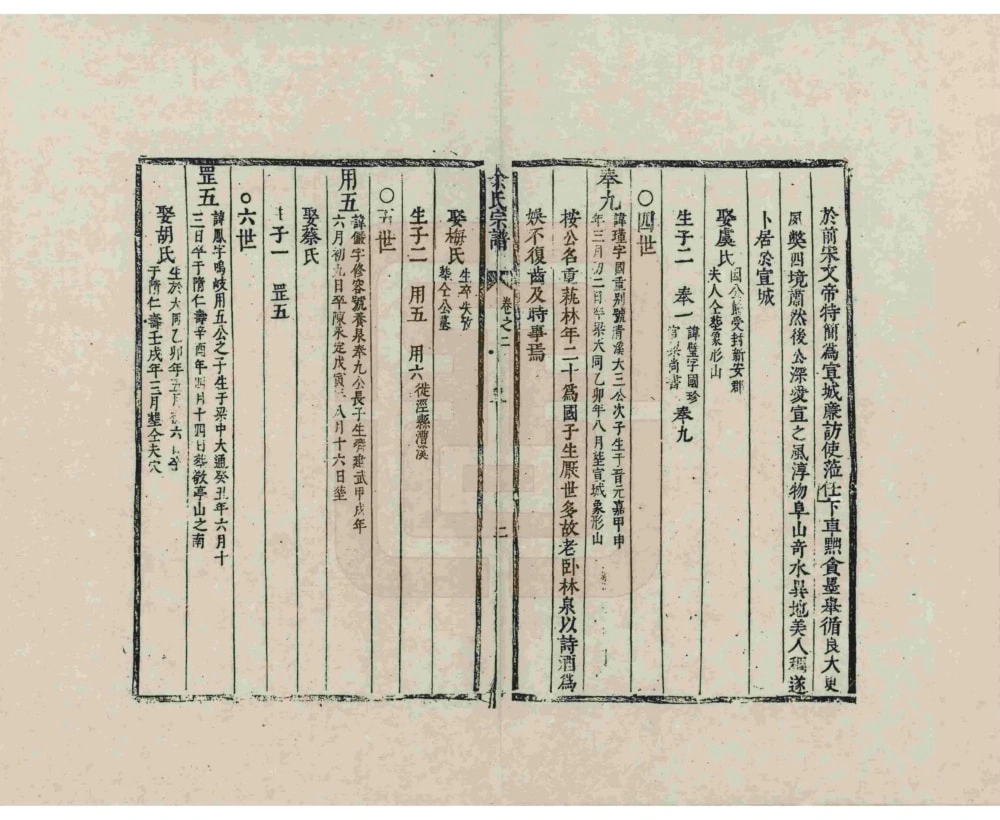 於前宋文帝特簡為宣城廉訪使蒞仕下車黜貪墨舉循良大吏
風獘四境肅然後公深愛宣之風淳物阜山奇水異地美人稠遂
卜居於宣城
娶虞氏 因公受封新安郡
夫人仝塟象形山
生子二 奉一 諱璧字國珍
官梁尚書 奉九
○四世
奉九 諱瑾字國重别號清溪大三公次子生于晋元嘉甲申
年三月初二日卒梁大同乙卯年八月塟宣城象形山
按公名重藝林年二十為國子生厭世多故老卧林泉以詩酒為
娛不復齒及時事焉
余氏宗譜 卷之二 二
娶梅氏 生卒失攷
塟仝公墓
生子二 用五 用六 徙涇縣漕溪
○五世
用五 諱儼字修容號養泉奉九公長子生齊建武甲戌年
六月初九日卒陳永定戊寅 八月十六日塟
娶蔡氏
生子一 罡五
○六世
罡五 諱鳳字鳴岐用五公之子生于梁中大通癸丑年六月十
三日卒于隋仁壽辛酉年四月十四日葬敬亭山之南
娶胡氏 生於大同乙卯年五月 六日卒
于隋仁壽壬戌年三月塟仝夫穴